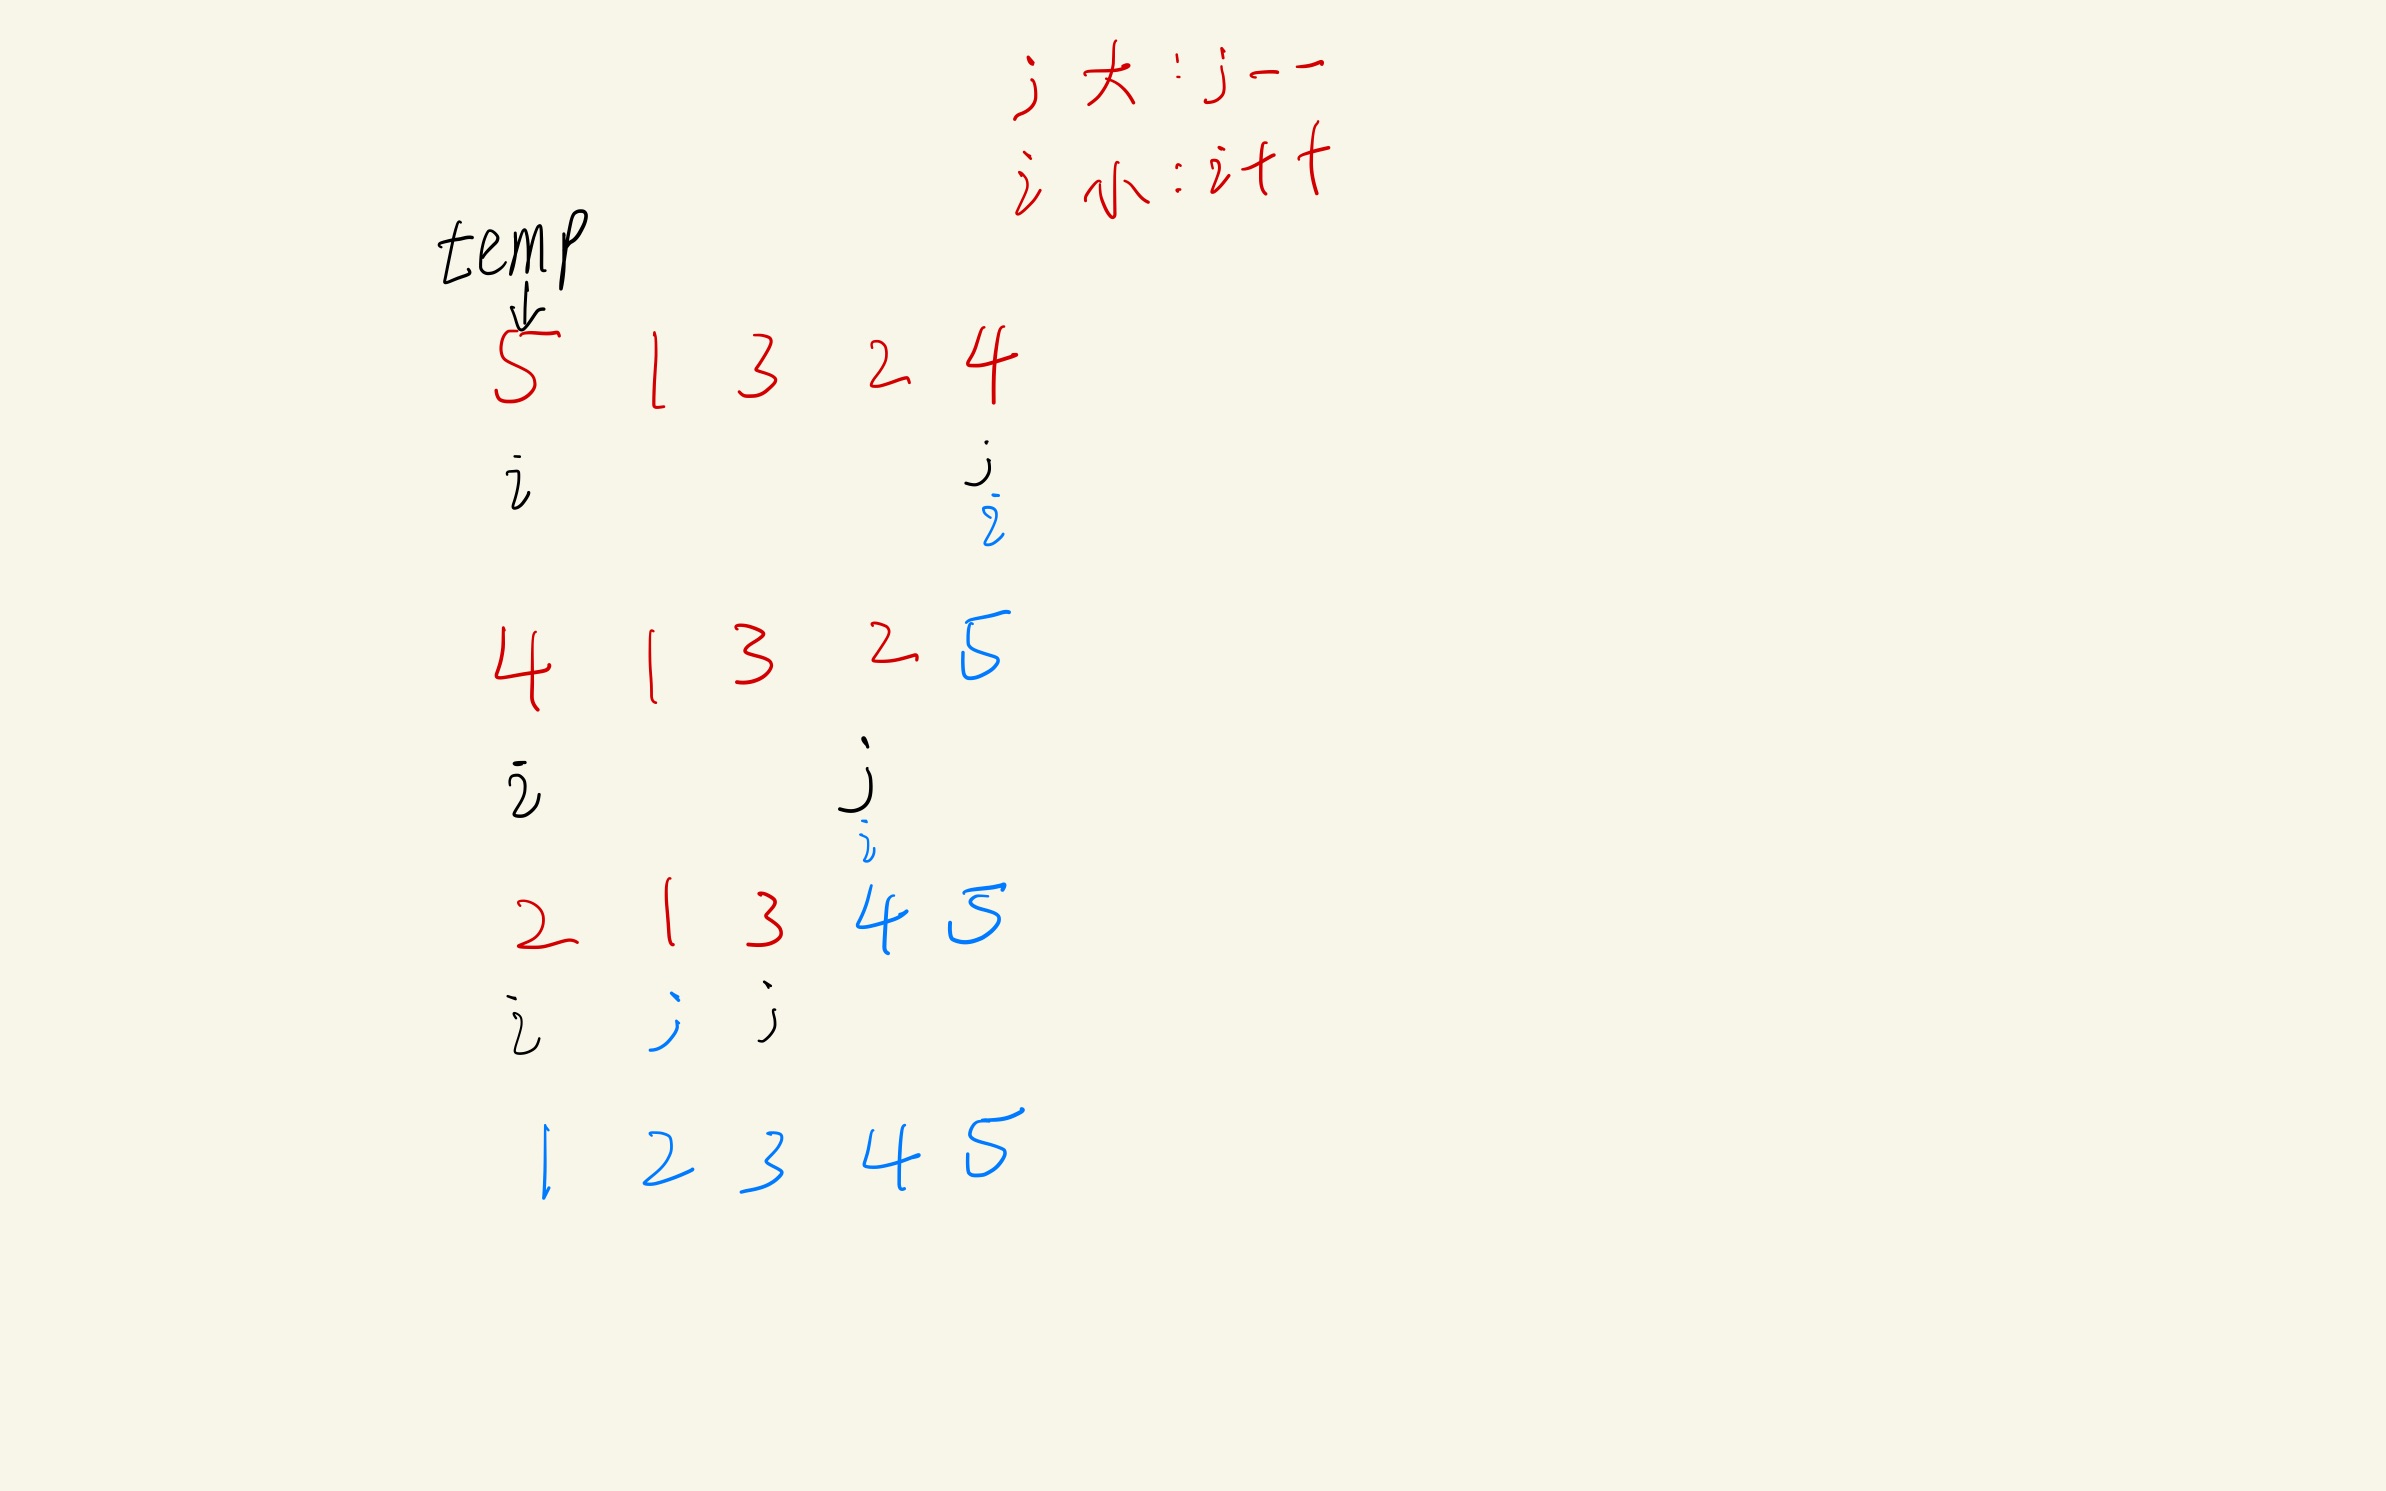 j 大 : j--
i 小 : i++
temp
5 1 3 2 4
i j
i
4 1 3 2 5
i j
i
2 1 3 4 5
i j j
1 2 3 4 5